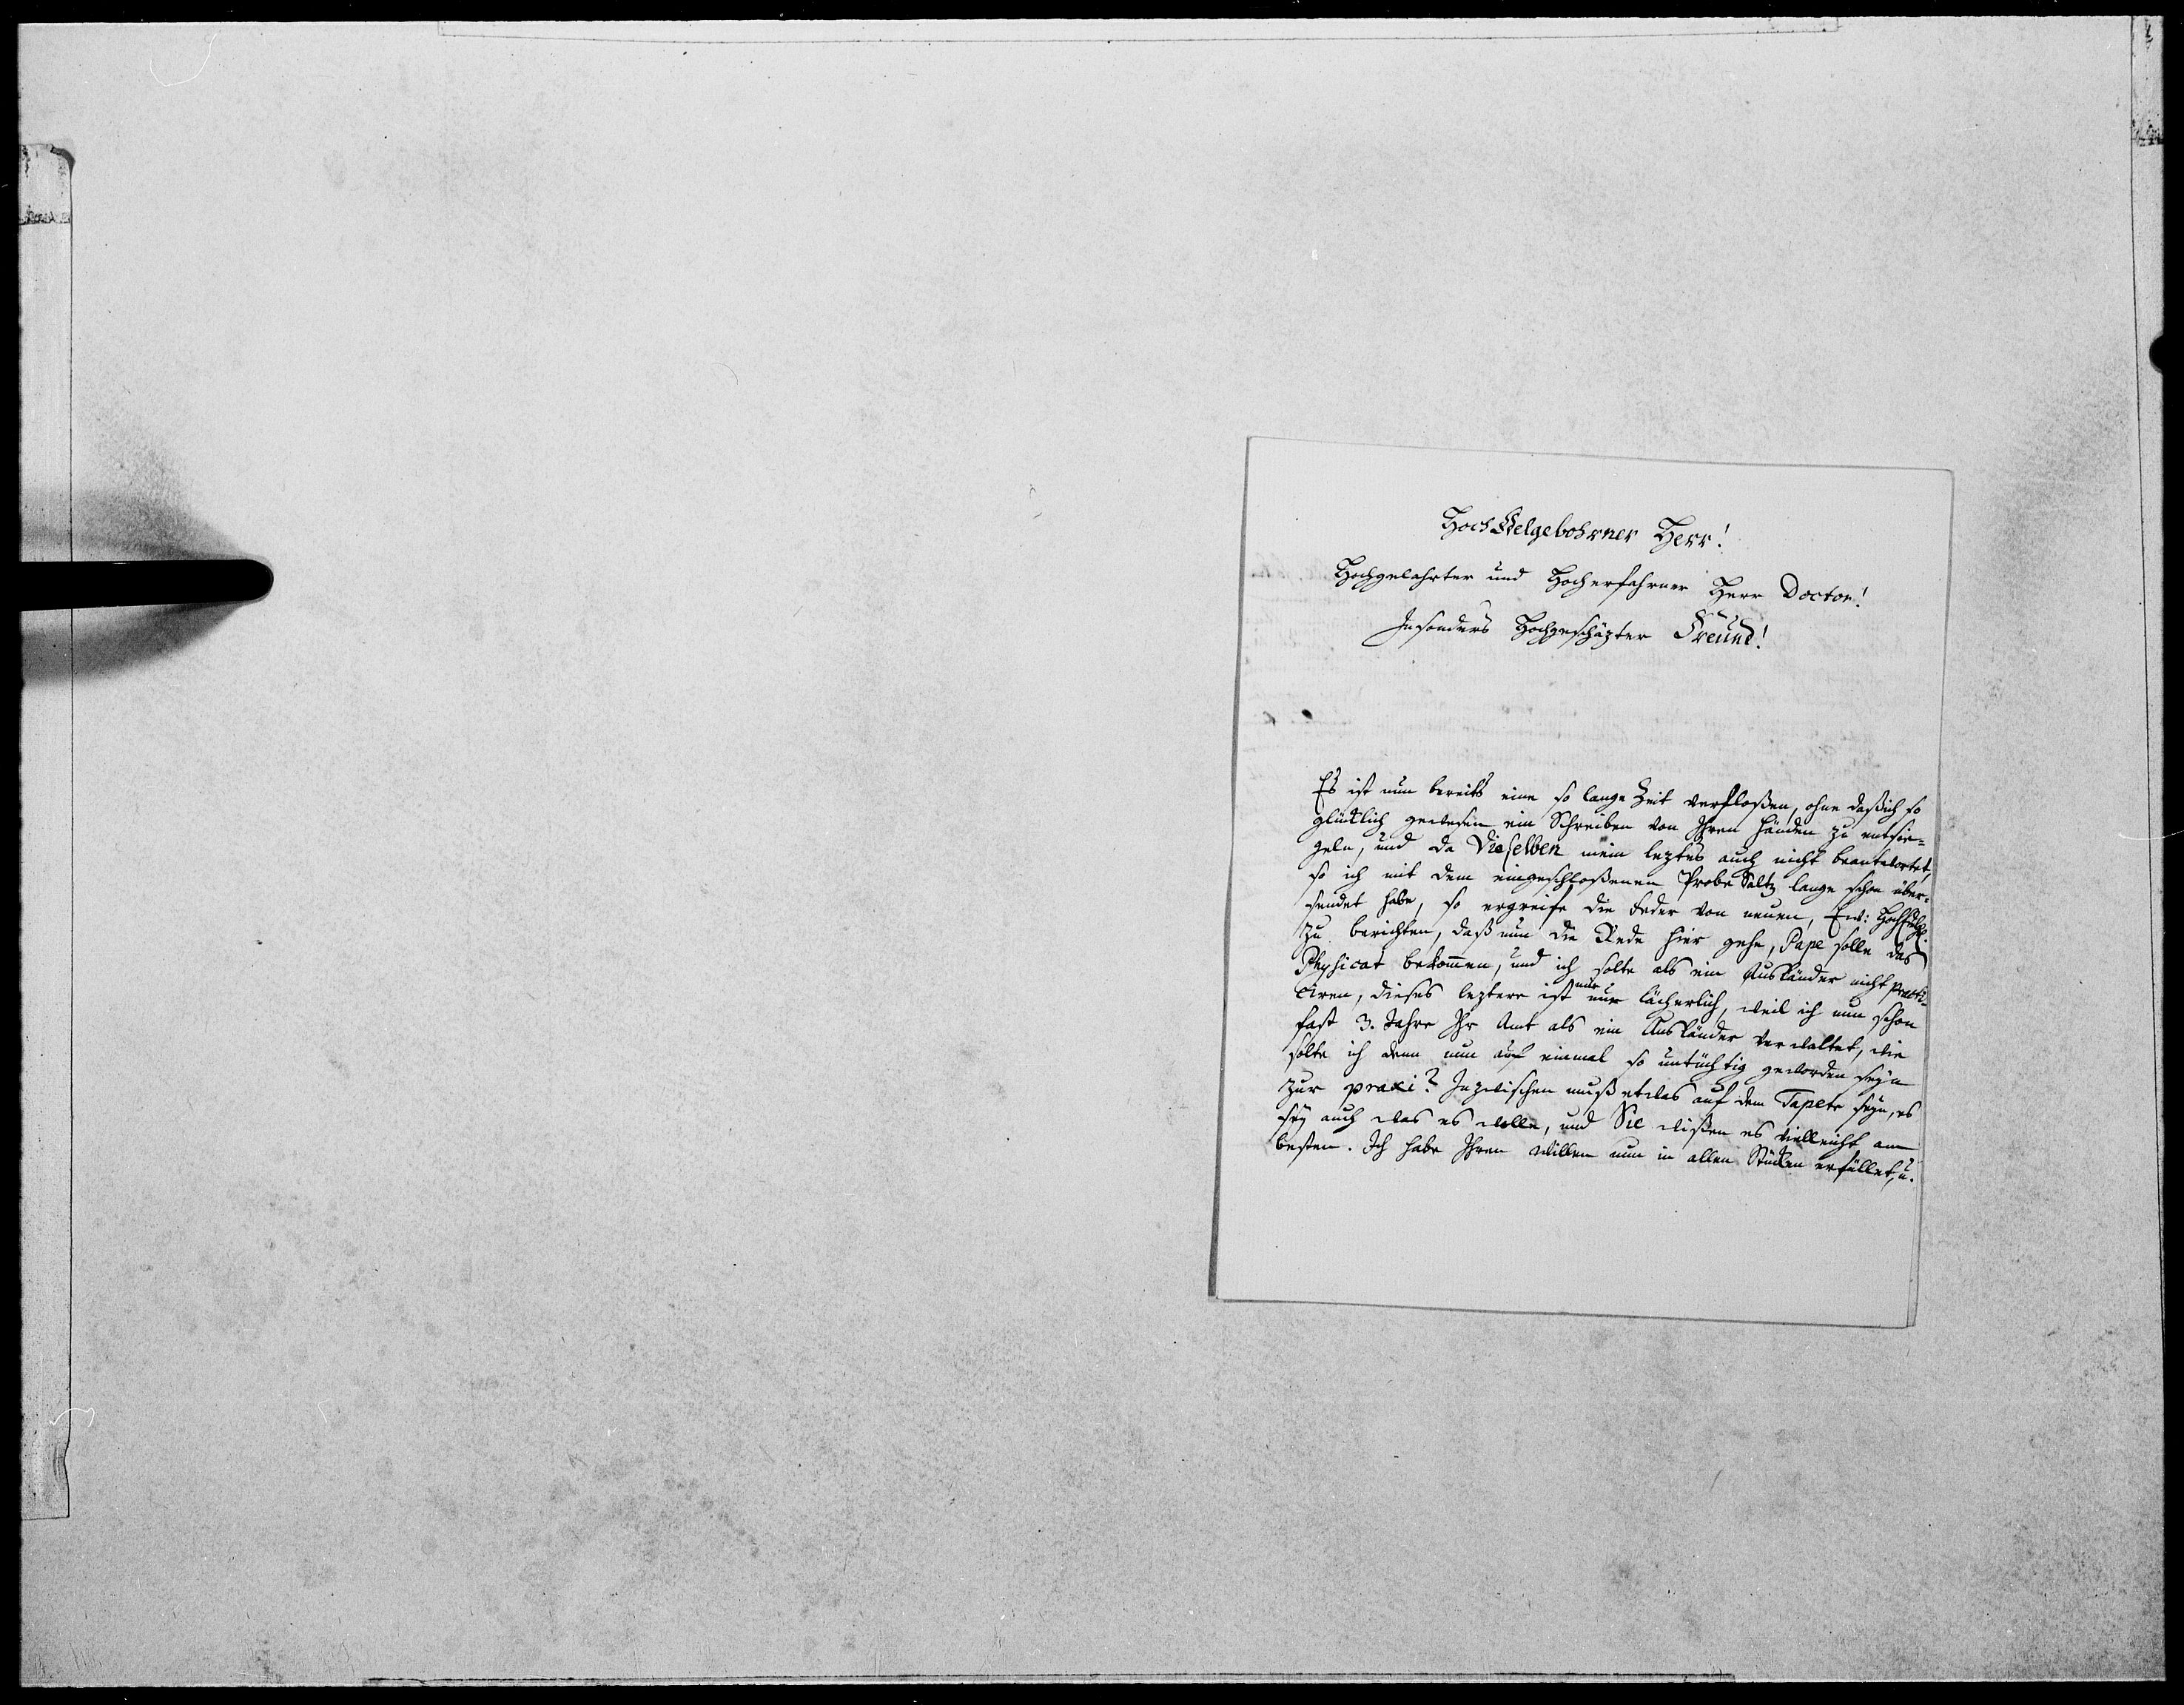 HochEdelgebohrner Herr!
Hochgelahrter und Hocherfahrner Herr Doctor!
Insonders Hochgeschäzter Freund!
Es ist nun bereits eine so lange Zeit verfloßen, ohne daß ich so
glücklich gewesen ein Schreiben von Ihren Händen zu entsie-
geln, und da Dieselben mein leztes auch nicht beantwortet,
so ich mit dem eingeschloßenen Probe Saltz lange schon über-
sendet habe, so ergreife die Feder von neuen, Ew:
zu berichten, daß nun die Rede hier gehe, Pape solle das
Physicat bekommen, und ich solte als ein Ausländer nicht practi-
ciren, dieses leztere ist nur lächerlich, weil ich nun schon
fast 3. Jahre Ihr Amt als ein Ausländer verwaltet, wie
solte ich denn nun auf einmal so untüchtig geworden seyn
zur praxi? Inzwischen muß etwas auf dem Tapete seyn, es
sey auch was es wolle, und Sie wißen es vielleicht am
besten. Ich habe Ihren Willen nun in allen Stücken erfüllet, u.